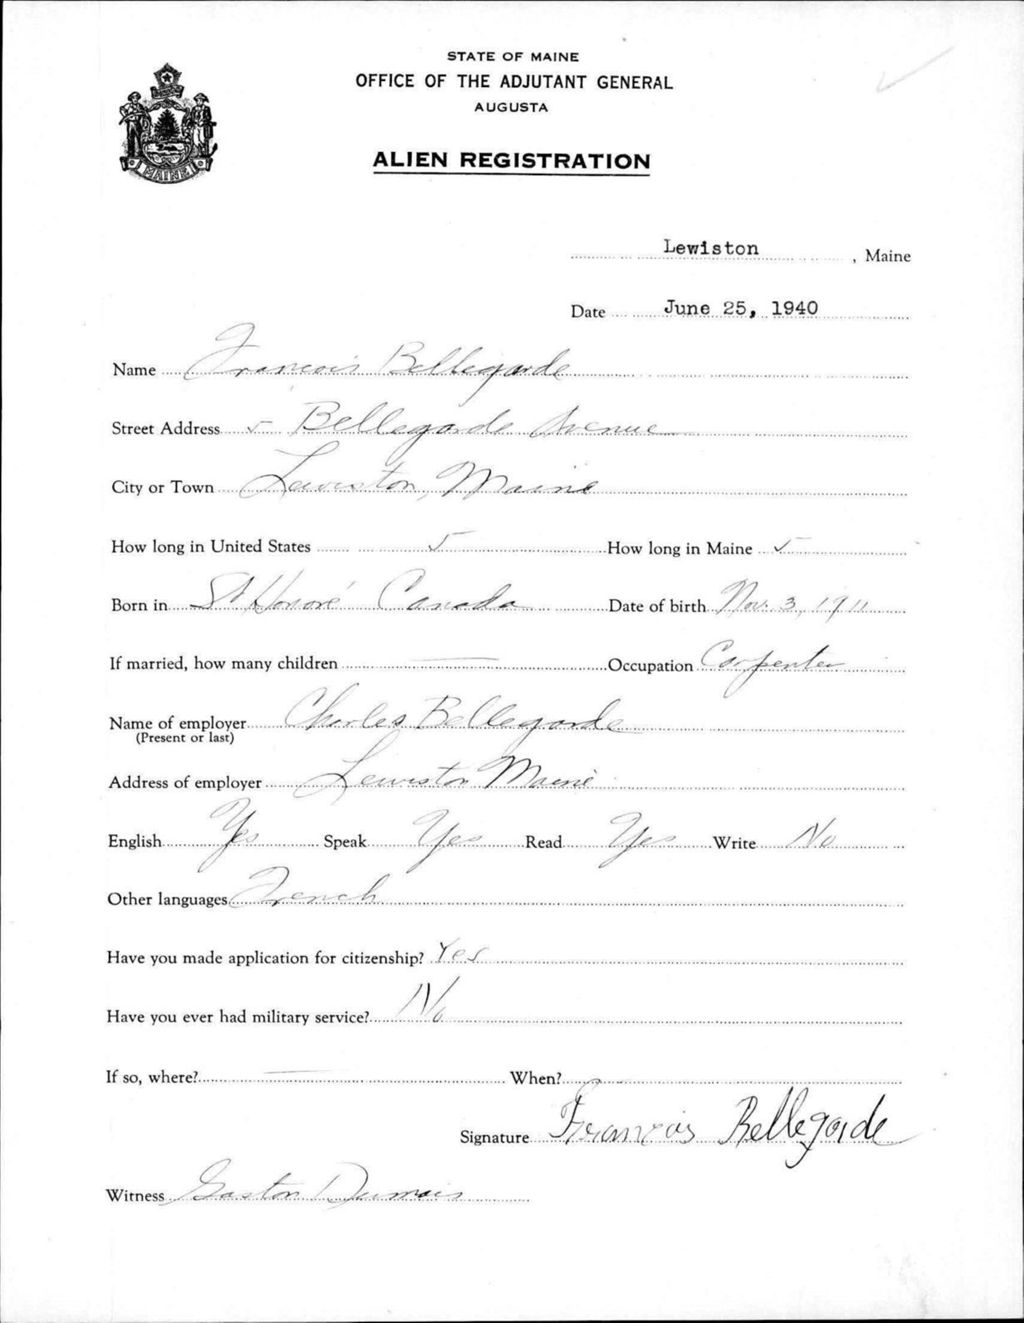 STATE OF MAINE
OFFICE OF THE ADJUTANT GENERAL
AUGUSTA
ALIEN REGISTRATION
MAINE
Lewiston, Maine
Date June 25, 1940
Name Francois Bellegarde
Street Address 5 Bellegarde Avenue
City or Town Lewiston, Maine
How long in United States 5 How long in Maine 5
Born in St Honoré Canada Date of birth Nov. 3, 1911
If married, how many children — Occupation Carpenter
Name of employer Charles Bellegarde
(Present or last)
Address of employer Lewiston Maine
English Yes Speak Yes Read Yes Write No
Other languages French
Have you made application for citizenship? Yes
Have you ever had military service? No
If so, where? — When? —
Signature Francois Bellegarde
Witness Gaston Dumais